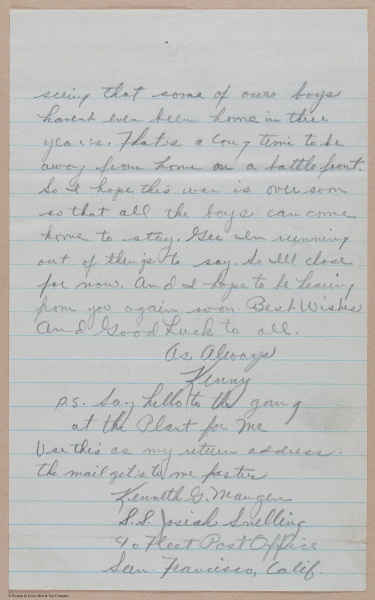 seeing that some of ours boys
havent even been home in three
years. That's a long time to be
away from home on a battle front.
So I hope this war is over soon
so that all the boys can come
home to stay. Gee Im running
out of things to say. So Ill close
for now. And I hope to be hearing
from you again soon. Best Wishes
And Good Luck to all.
As Always
Kenny
P.S. Say hello to the gang
at the Plant for Me
Use this as my return address.
the mail gets to me faster
Kenneth G. Maugen
S.S. Josiah Snelling
c/o Fleet Post Office
San Francisco, Calif.